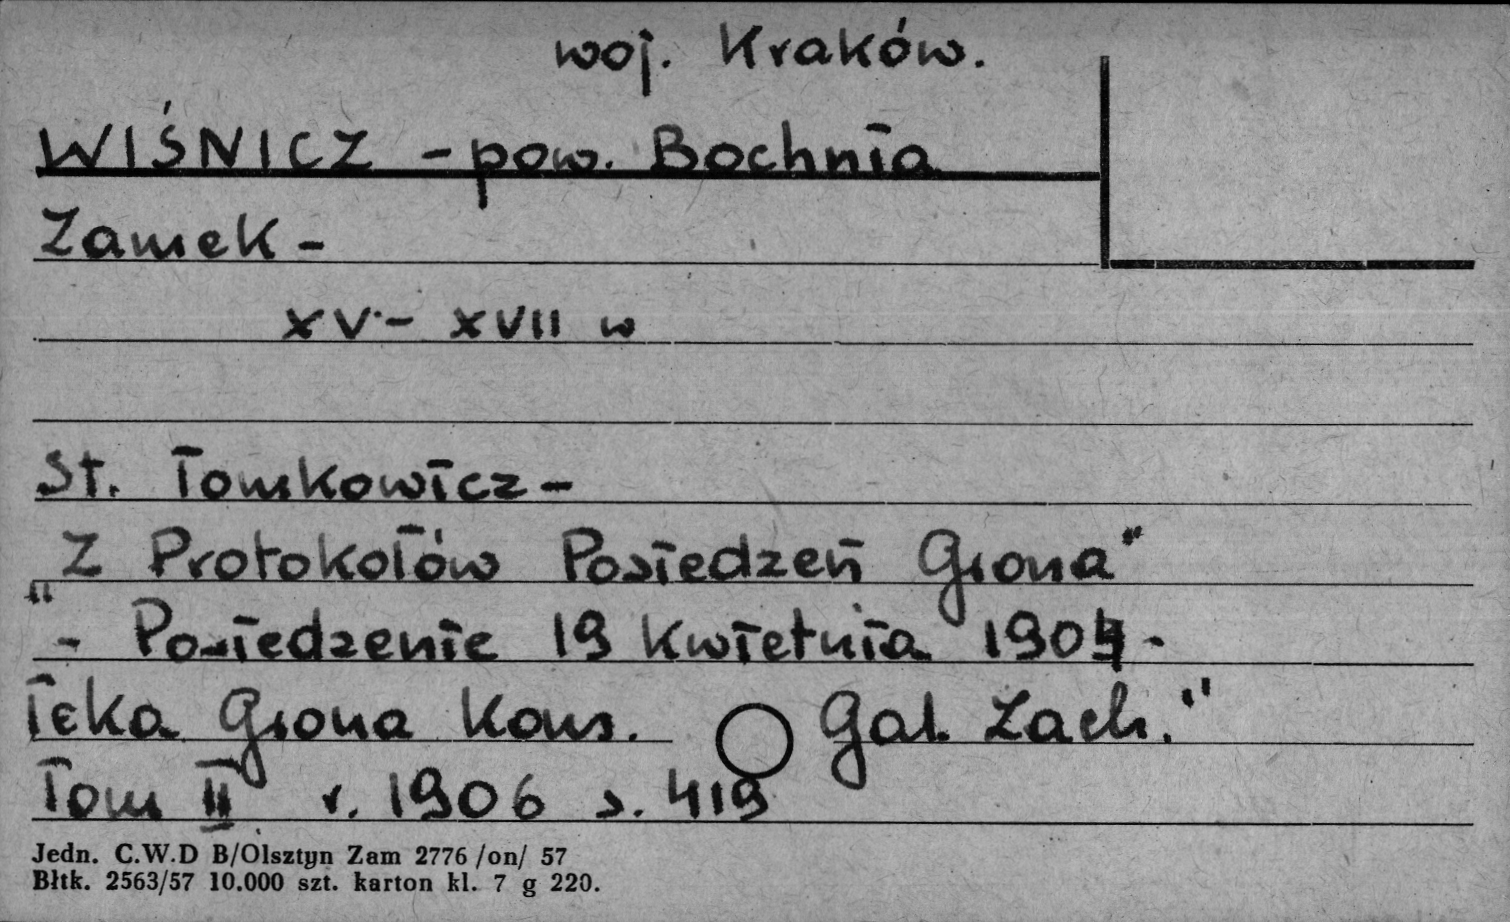 woj. Kraków.
WIŚNICZ - pow. Bochnia
Zamek -
XV - XVII w
St. Tomkowicz -
Z Protokołów Posiedzeń Grona"
" - Posiedzenie 19 kwietnia 1904 -
Teka Grona Kons. Gal. Zach."
Tom II r. 1906 s. 419
Jedn. C.W.D B/Olsztyn Zam 2776 /on/ 57
Błtk. 2563/57 10.000 szt. karton kl. 7 g 220.